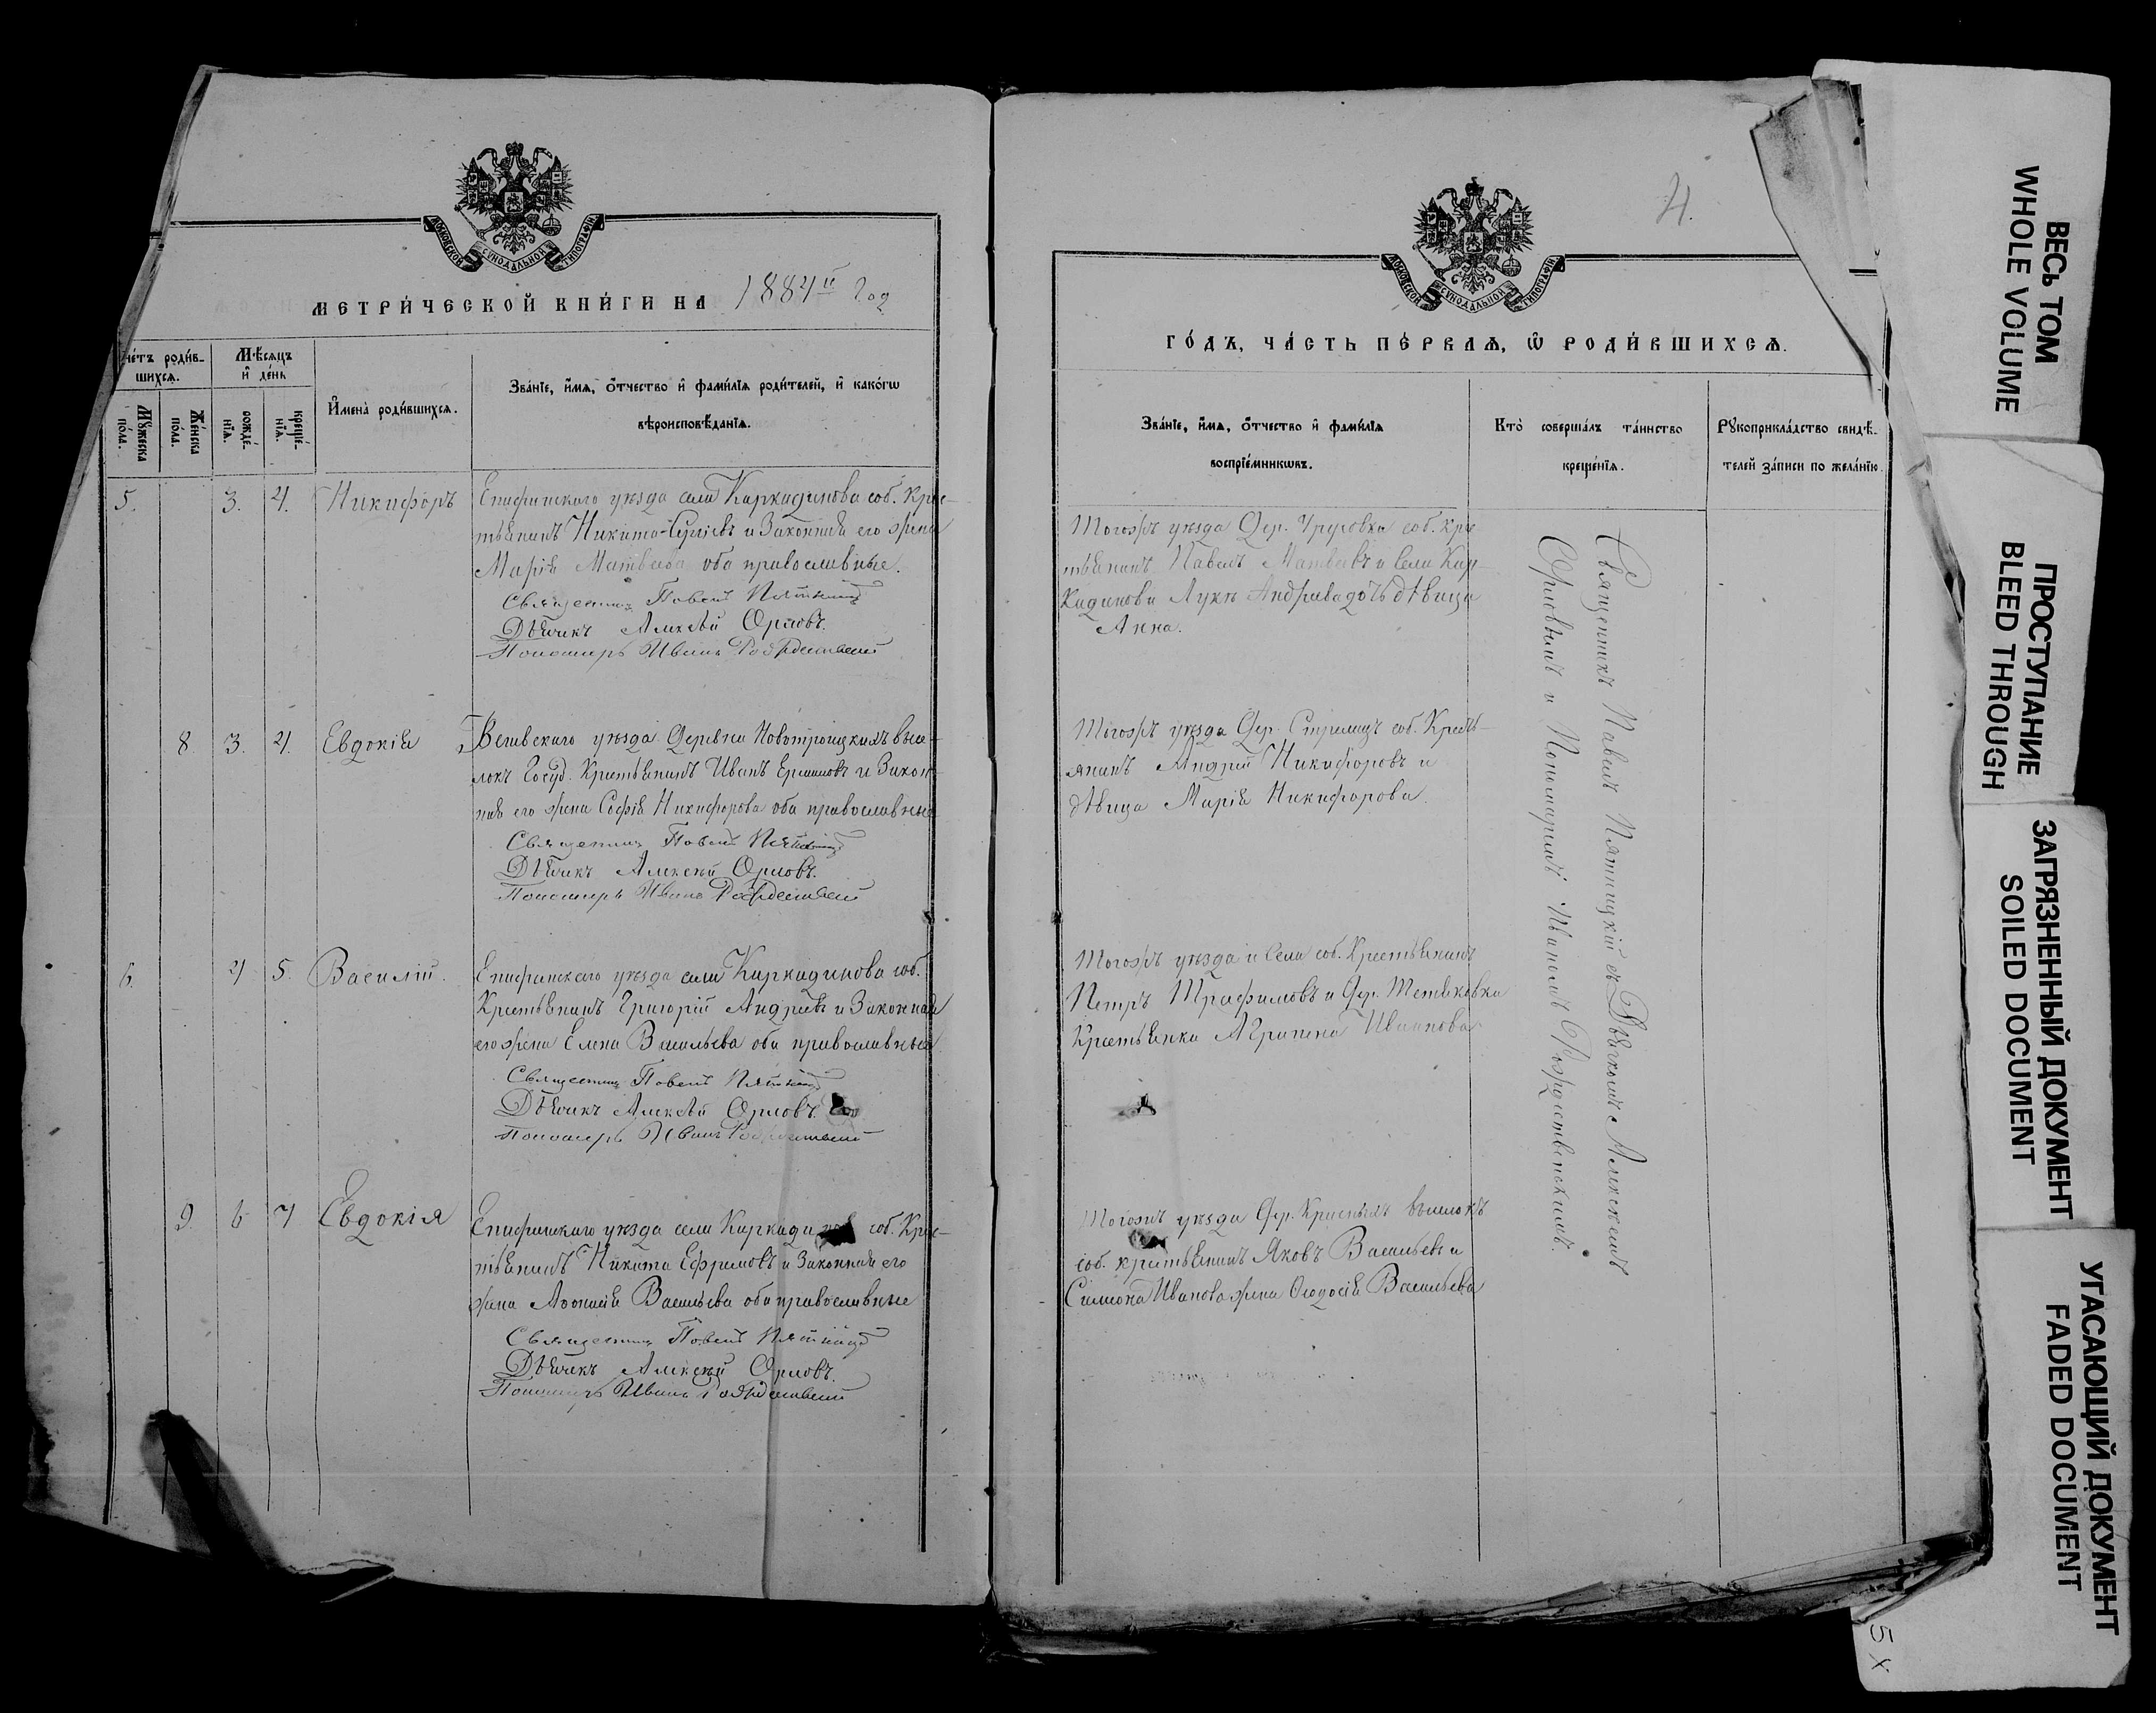 МОСКОВСКОЙ СУНОДАЛЬНОЙ ТИПОГРАФІИ
МЕТРИ́ЧЕСКОЙ КНИ́ГИ НА 1884 й Год
че́тъ роди́в-
шихсѧ.
Мѣ́сѧцъ
и҆ де́нь
Мꙋ́жеска
по́ла.
Же́нска
по́ла.
рожде́-
нїѧ.
креще́-
нїѧ.
И҆мена̀ роди́вшихсѧ.
Зва́нїе, и҆́мѧ, ѻ҆́тчество и҆ фами́лїѧ роди́телей, и҆ како́гѡ
вѣроисповѣ́данїѧ.
5. 3. 4. Никифоръ
Епифанскаго уѣзда села Каркадинова соб. Крес-
тьянинъ Никита Сергіевъ и Законная его жена
Марія Матвеева оба православные.
Священник Павелъ Пятницкій
Дьячекъ Алексѣй Орловъ.
Пономарь Иванъ Рождественскій
8. 3. 4. Евдокія
уѣзда Деревни Новотроицкихъ высе-
локъ Госуд. Крестьянинъ Иванъ и Закон-
ная его жена Софія Никифорова оба православные
Священник Павелъ Пятницкій
Дьячекъ Алексѣй Орловъ.
Пономарь Иванъ Рождественскій
6. 4 5. Василій.
Епифанскаго уѣзда села Каркадинова соб.
Крестьянинъ Григорій Андреевъ и Законная
его жена Елена Васильева оба православные
Священник Павелъ Пятницкій
Дьячекъ Алексѣй Орловъ.
Пономарь Иванъ Рождественскій
9. 6 7 Евдокія
Епифанскаго уѣзда села соб. Крес-
тьянинъ Никита Ефремовъ и Законная его
жена Васильева оба православные
Священник Павелъ Пятницкій
Дьячекъ Алексѣй Орловъ.
Пономарь Иванъ Рождественскій
4.
МОСКОВСКОЙ СУНОДАЛЬНОЙ ТИПОГРАФІИ
ГО́ДЪ, ЧА́СТЬ ПЕ́РВАѦ, Ѡ҆ РОДИ́ВШИХСѦ.
Зва́нїе, и҆́мѧ, ѻ҆́тчество и҆ фами́лїѧ
воспрїе́мникѡвъ.
Кто̀ соверша́лъ та́инство
креще́нїѧ.
Рꙋкоприкла́дство свидѣ́-
телей за́писи по жела́нїю.
Тогожъ уѣзда Дер. соб. крес-
тьянинъ Павелъ Матвеевъ и села Кар-
кадинова Луки Андреева дочь дѣвица
Анна.
Тогожъ уѣзда Дер. соб. Кресть-
янинъ Андрей Никифоровъ и
дѣвица Марія Никифорова.
Тогожъ уѣзда и села соб. Крестьянинъ
Петръ Трафимовъ и Дер.
Крестьянка Агрипена Иванова
Тогожъ уѣзда Дер. Красныхъ выселокъ
соб. крестьянинъ Яковъ Васильевъ и
Симеона Иванова жена Ѳеодосія Васильева
Священникъ Павелъ Пятницкій съ Дьячкомъ Алексѣемъ
Орловымъ и Пономаремъ Иваномъ Рождественскимъ.
ВЕСЬ ТОМ
WHOLE VOLUME
ПРОСТУПАНИЕ
BLEED THROUGH
ЗАГРЯЗНЕННЫЙ ДОКУМЕНТ
SOILED DOCUMENT
УГАСАЮЩИЙ ДОКУМЕНТ
FADED DOCUMENT
5 X